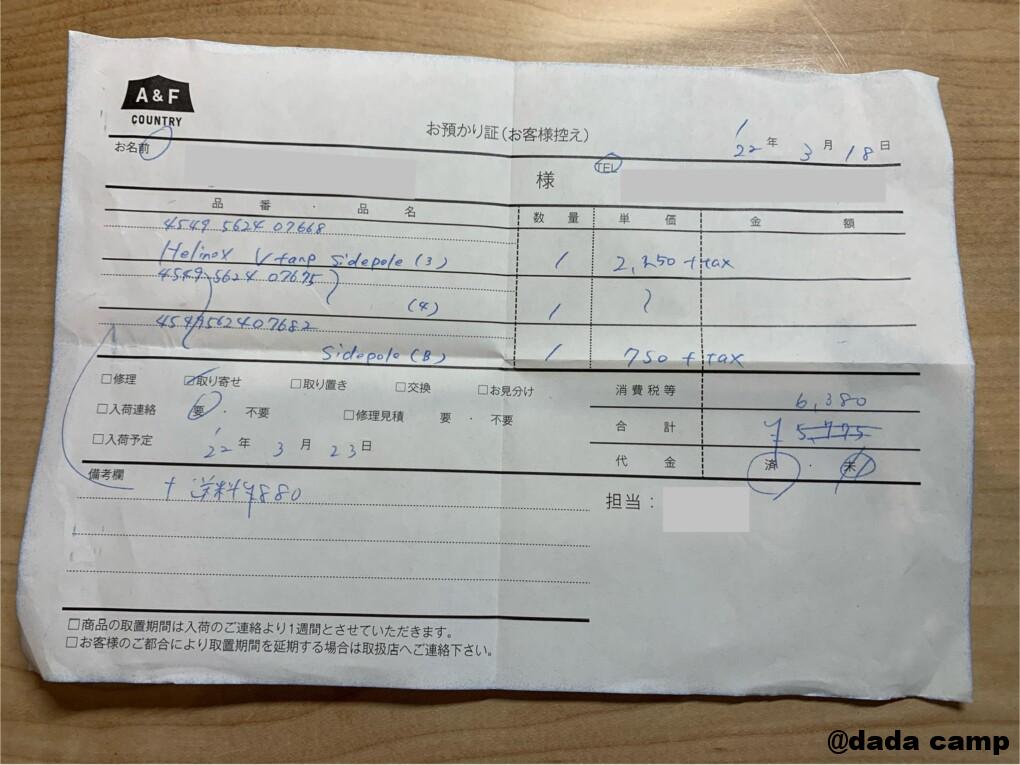 A & F
COUNTRY
お預かり証(お客様控え)
'22 年 3 月 18 日
お名前
様
TEL
品 番 ・ 品 名 数 量 単 価 金 額
4549 5624 07668
Helinox V tarp sidepole (3) 1 2,250 + tax
4549 5624 07675
(4) 1
4549562407682
sidepole (B) 1 750 + tax
□修理 ☑取り寄せ □取り置き □交換 □お見分け
□入荷連絡 要 ・ 不要 □修理見積 要 ・ 不要
□入荷予定 '22 年 3 月 23 日
消 費 税 等
6,380
合 計 ¥ 5,775
代 金 済 ・ 未
備考欄
+ 送料¥880
担当:
□商品の取置期間は入荷のご連絡より1週間とさせていただきます。
□お客様のご都合により取置期間を延期する場合は取扱店へご連絡下さい。
@dada camp